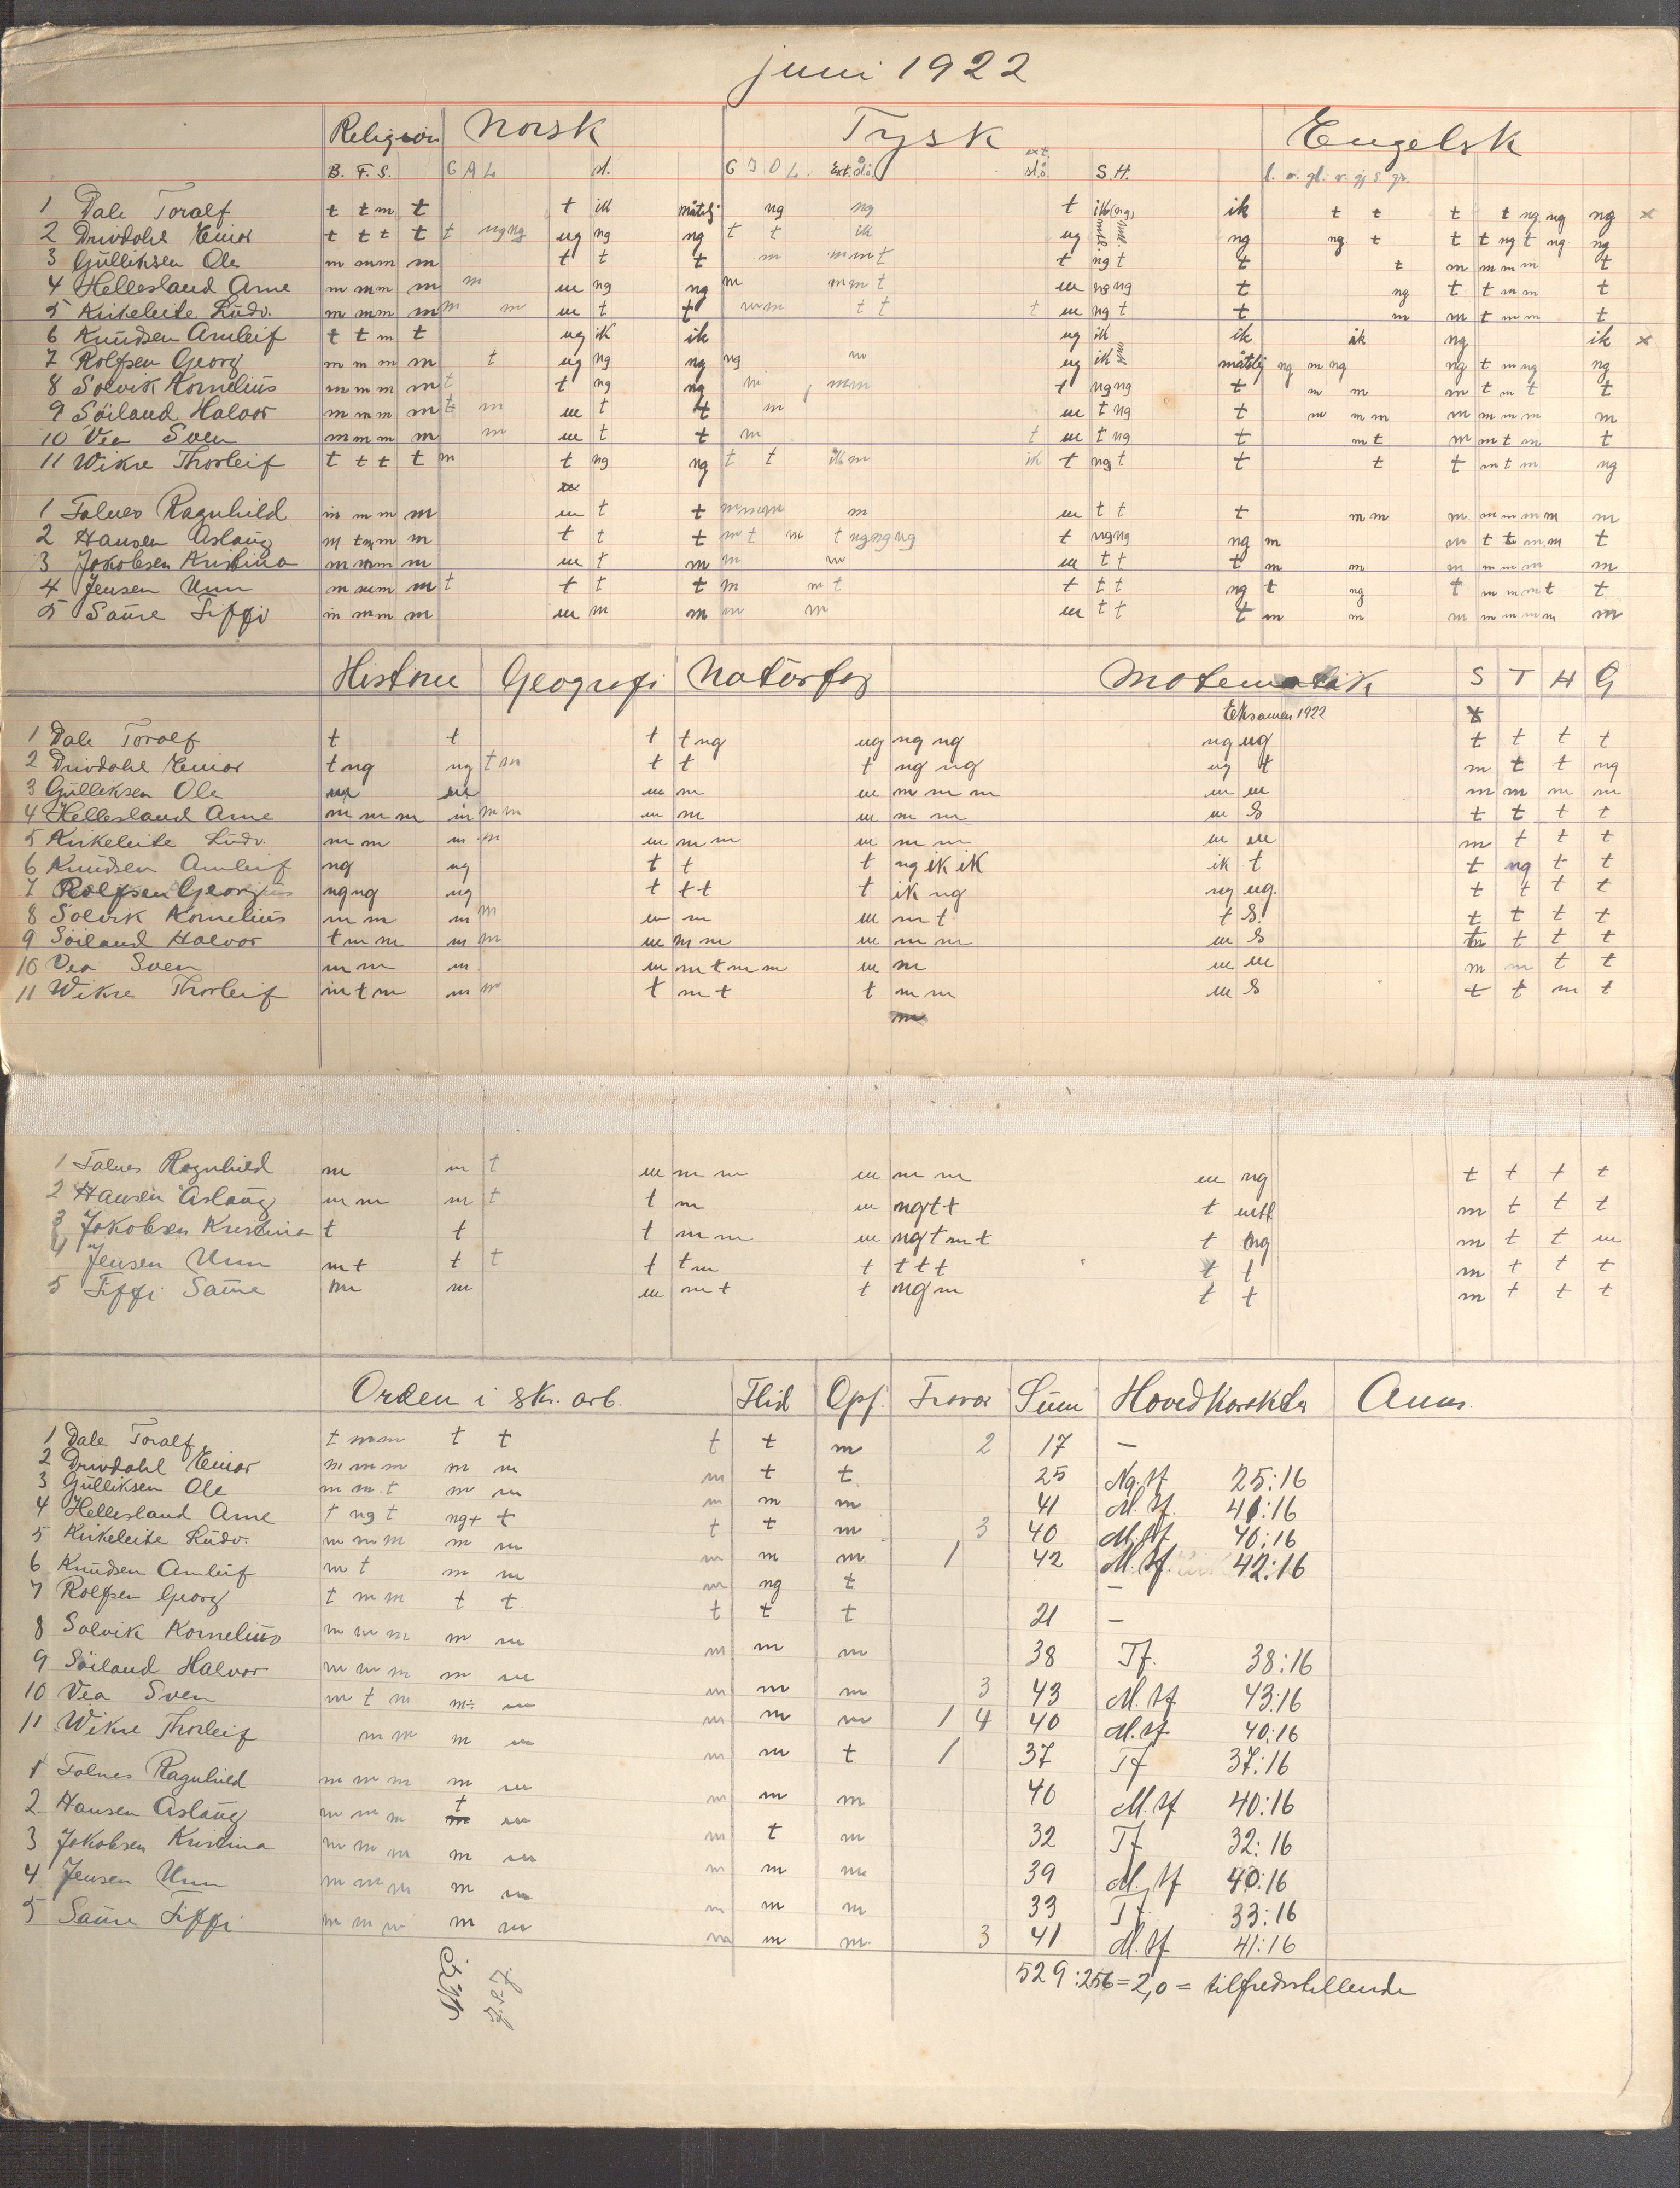 juni 1922
Religion Norsk Tysk Engelsk
B. F. S. G A L st. G J O L. Ext. st.ö. ext. st.ö. S. H. l. o. gl. v. gj s. gr.
1 Dale Toralf t t m t t ik måtelj ng ng t ik (ng) ik t t t t ng ng ng x
2 Drivdahl Einar t t t t t ng ng ng ng ng t t ik ng ng ng t t t ng t ng ng
3 Gulliksen Ole m m m m t t t m m m t t ng t t t m m m m t
4 Hellesland Arne m m m m m m ng ng m m m t m ng ng t ng t t m m t
5 Kirkeleite Ludv. m m m m m m m t t m m t t t m ng t t m m t m m t
6 Knudsen Arnleif t t m t ng ik ik ng ik ik ik ng ik x
7 Rolfsen Georg m m m m t ng ng ng ng m ng ik måtelj ng m ng ng t m ng ng
8 Solvik Kornelius m m m m t t ng ng m m m t ng ng t m m m t m t t
9 Söiland Halvor m m m m t m m t t m m t ng t m m m m m m m m
10 Vea Sven m m m m m m t t m t m t ng t m t m m t m t
11 Wikre Thorleif t t t t m t ng ng t t ik m ik t ng t t t t m t m ng
1 Falnes Ragnhild m m m m m t t m m m m m m t t t m m m m m m m m
2 Hansen Aslaug m t m m m t t t m t m t ng ng ng t ng ng ng m m t t m m t
3 Jakobsen Kristina m m m m m t m m m m t t t m m m m m m m
4 Jensen Unn m m m m t t t t m m t t t t ng t ng t m m m t t
5 Saure Siffi m m m m m m m m m m t t t m m m m m m m m
Historie Geografi Naturfag Matematik S T H G
Eksamen 1922
1 Dale Toralf t t t t ng ng ng ng ng ng t t t t
2 Drivdahl Einar t ng ng t m t t t ng ng ng t m t t ng
3 Gulliksen Ole m m m m m m m m m m m m m m
4 Hellesland Arne m m m m m m m m m m m m S t t t t
5 Kirkeleite Ludv. m m m m m m m m m m m m m t t t
6 Knudsen Arnleif ng ng t t t ng ik ik ik t t ng t t
7 Rolfsen Georg ng ng ng t t t t ik ng ng ng. t t t t
8 Solvik Kornelius m m m m m m m m t t S. t t t t
9 Söiland Halvor t m m m m m m m m m m m S t t t
10 Vea Sven m m m m m t m m m m m m m m t t
11 Wikre Thorleif m t m m m t m t t m m m S t t m t
1 Falnes Ragnhild m m t m m m m m m m ng t t t t
2 Hansen Aslaug m m m t t m m ng t t t mtl. m t t t
3 Jakobsen Kristina t t t m m m ng t m t t ng m t t m
4 Jensen Unn m t t t t t m t t t t t t m t t t
5 Siffi Saure m m m m t t ng m t t m t t t
Orden i skr. arb. Flid Opf. Fravær Sum Hovedkarakter Anm.
1 Dale Toralf t m m t t t t m 2 17 —
2 Drivdahl Einar m m m m m m t t 25 Ng. tf 25:16
3 Gulliksen Ole m m t m m m m m 41 M. tf. 41:16
4 Hellesland Arne t ng t ng+ t t t m 3 40 M. tf 40:16
5 Kirkeleite Ludv. m m m m m m m m 1 42 M. tf. 42:16
6 Knudsen Arnleif m t m m m ng t —
7 Rolfsen Georg t m m t t t t t 21 —
8 Solvik Kornelius m m m m m m m m 38 Tf. 38:16
9 Söiland Halvor m m m m m m m m 3 43 M. tf 43:16
10 Vea Sven m t m m÷ m m m m 1 4 40 M. tf 40:16
11 Wikre Thorleif m m m m m m t 1 37 Tf 37:16
1 Falnes Ragnhild m m m m m m m m 40 M. tf 40:16
2 Hansen Aslaug m m m t m m t m 32 Tf 32:16
3 Jakobsen Kristina m m m m m m m m 39 M. tf 40:16
4 Jensen Unn m m m m m m m m 33 Tf. 33:16
5 Saure Siffi m m m m m m m m 3 41 M. tf 41:16
529:256=2,0= tilfredsstellende